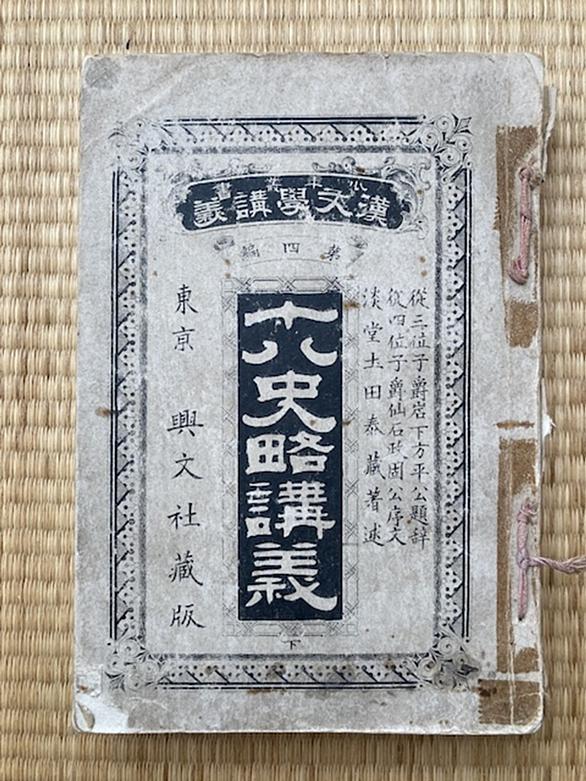 少年叢書
漢文學講義
第四編
從三位子爵岩下方平公題辭
從四位子爵仙石政固公序文
淡堂土田泰藏著述
十八史略講義
下
東京 興文社藏版